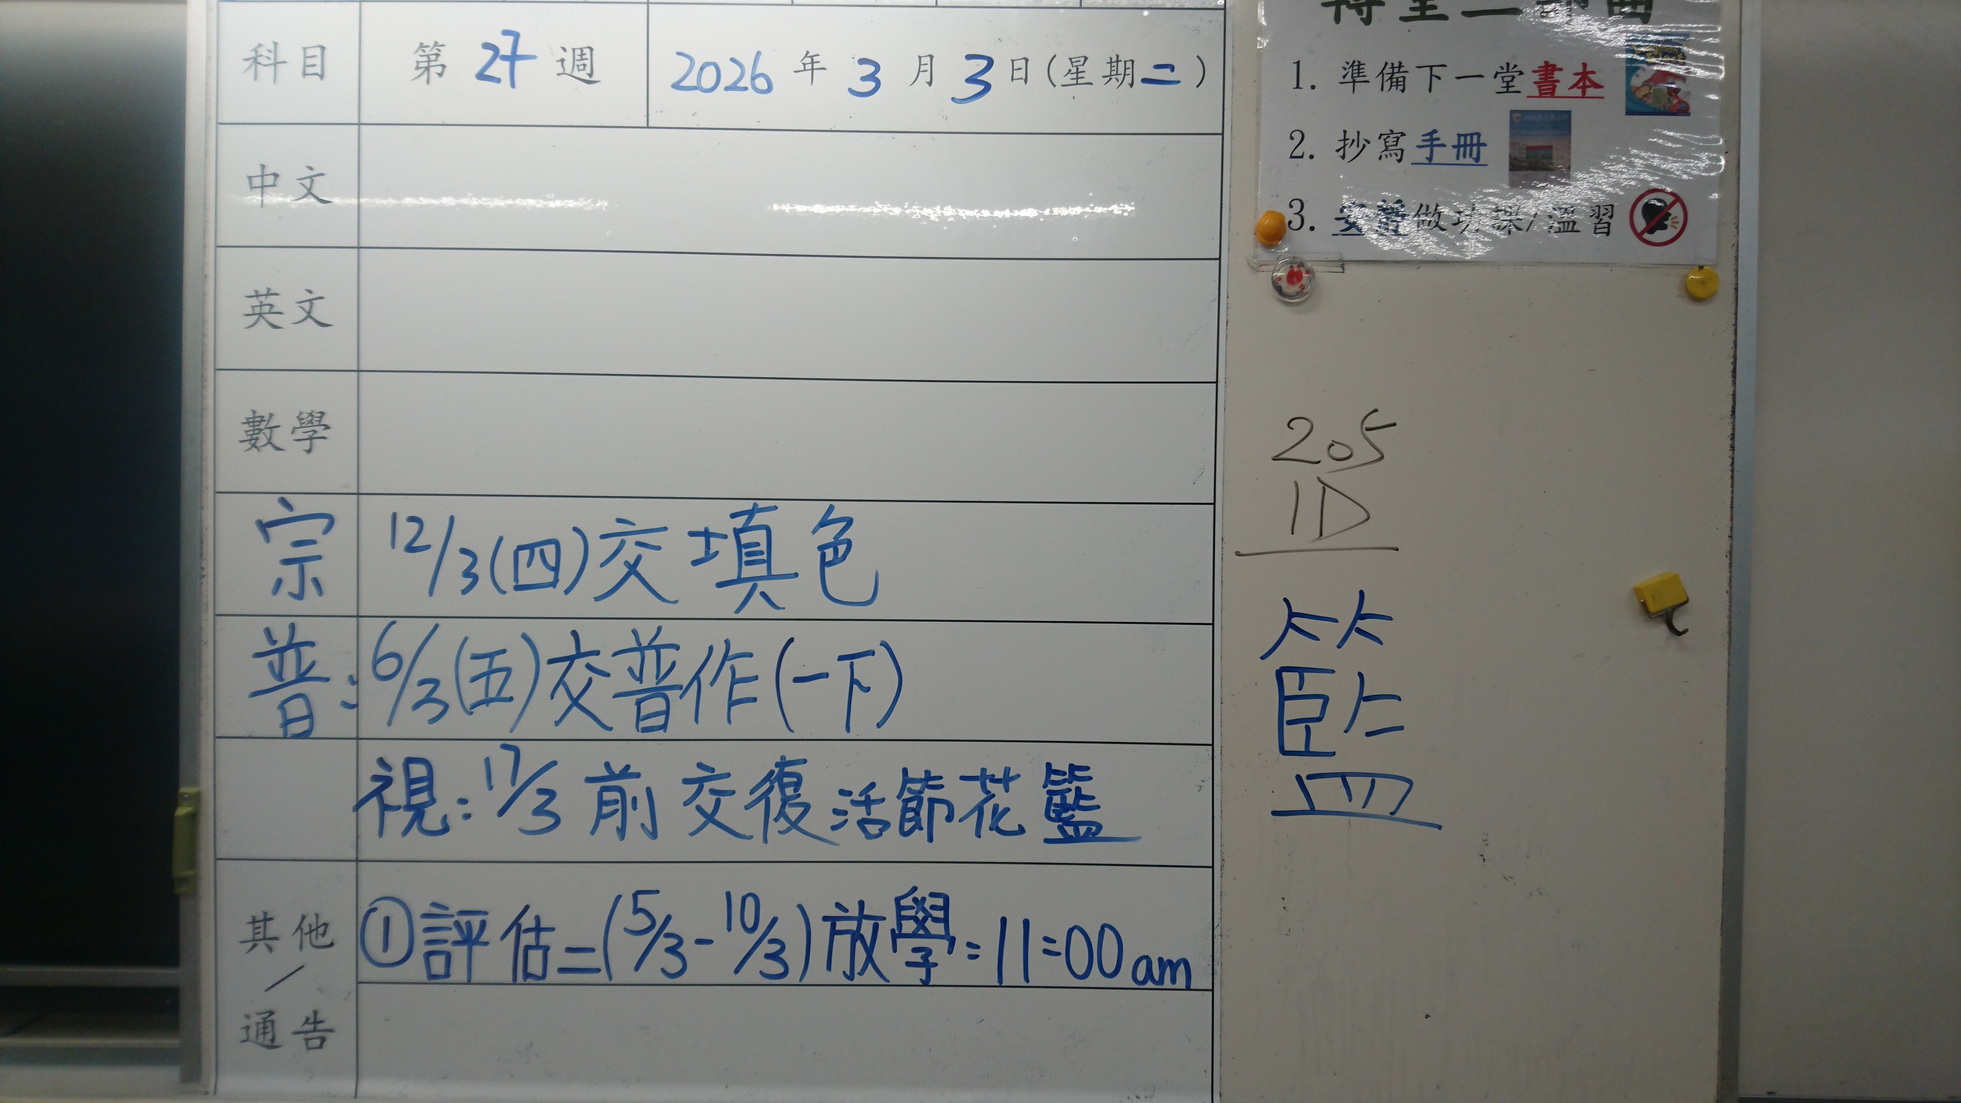 科目 第 27 週 2026 年 3 月 3 日(星期二)
中文
英文
數學
宗 12/3(四)交填色
普: 6/3(五)交普作(一下)
視: 17/3 前交復活節花籃
其他/通告 ①評估二(5/3-10/3)放學:11:00am
1. 準備下一堂書本
2. 抄寫手冊
3. 安靜做功課/溫習
205
1D
籃